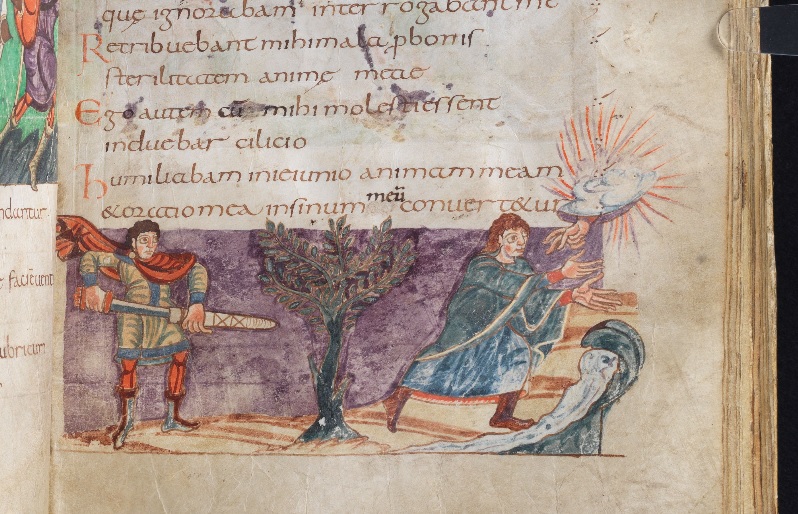 que ignorabam interrogabant me
Retribuebant mihi mala p bonis
sterilitatem anime meae
Ego autem cū mihi molesti essent
induebar cilicio
humiliabam inieiunio animam meam
& oratio mea insinum meū conuert&ur
ndantur
faciēunt
ubricum